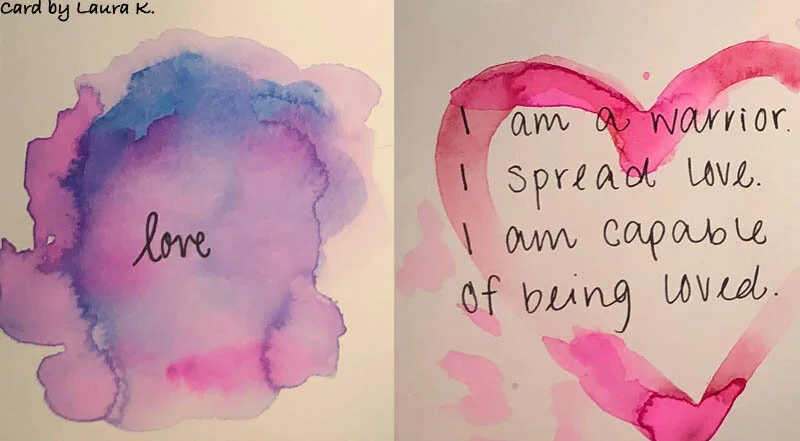 Card by Laura K.
love
I am a warrior.
I spread love.
I am capable
of being loved.